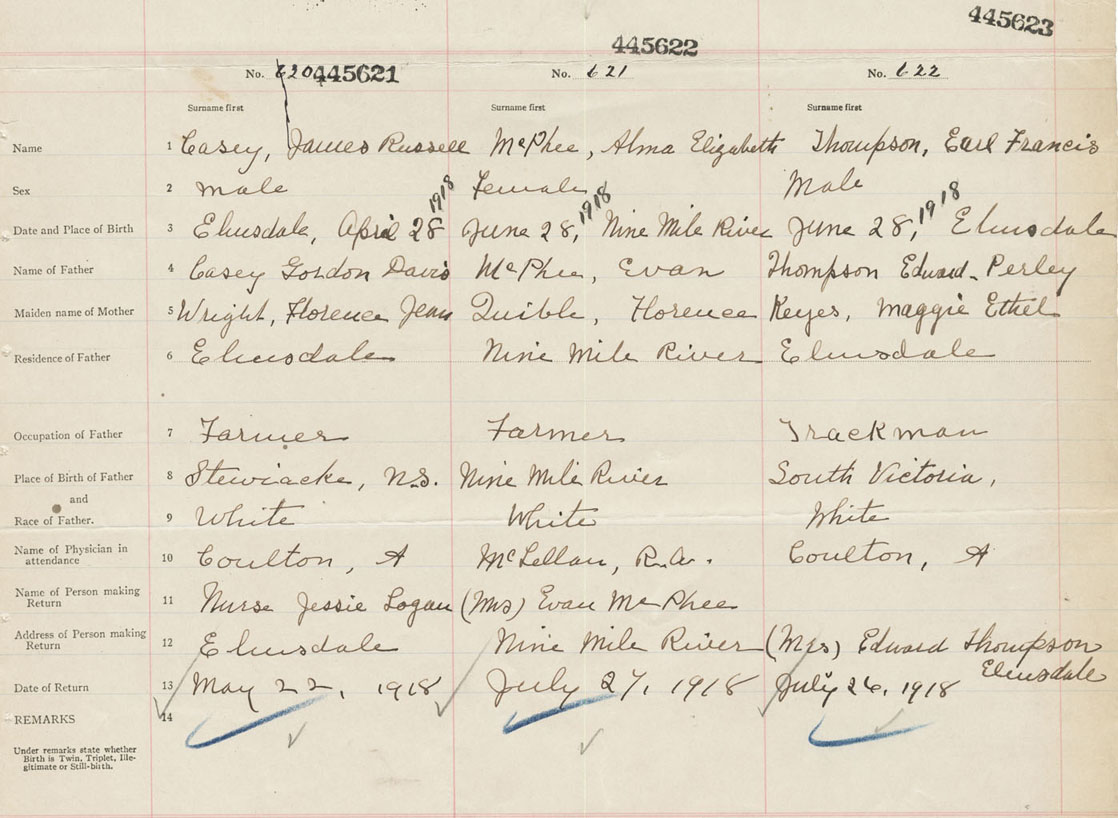 445623
445622
No. 620 445621 No. 621 No. 622
Surname first Surname first Surname first
Name 1 Casey, James Russell McPhee, Alma Elizabeth Thompson, Earl Francis
Sex 2 male Female Male
Date and Place of Birth 3 Elmsdale, April 28 1918 June 28, 1918 Nine Mile River June 28, 1918 Elmsdale
Name of Father 4 Casey Gordon Davis McPhee, Evan Thompson Edward Perley
Maiden name of Mother 5 Wright, Florence Jean Quible, Florence Keyes, Maggie Ethel
Residence of Father 6 Elmsdale Nine Mile River Elmsdale
Occupation of Father 7 Farmer Farmer Trackman
Place of Birth of Father 8 Stewiacke, N.S. Nine Mile River South Victoria,
and
Race of Father. 9 White White White
Name of Physician in
attendance 10 Coulton, A McLellan, R.A. Coulton, A
Name of Person making
Return 11 Nurse Jessie Logan (Mrs) Evan McPhee
Address of Person making
Return 12 Elmsdale Nine Mile River (Mrs) Edward Thompson
Elmsdale
Date of Return 13 May 22, 1918 July 27, 1918 July 26, 1918
REMARKS 14
Under remarks state whether
Birth is Twin, Triplet, Ille-
gitimate or Still-birth.